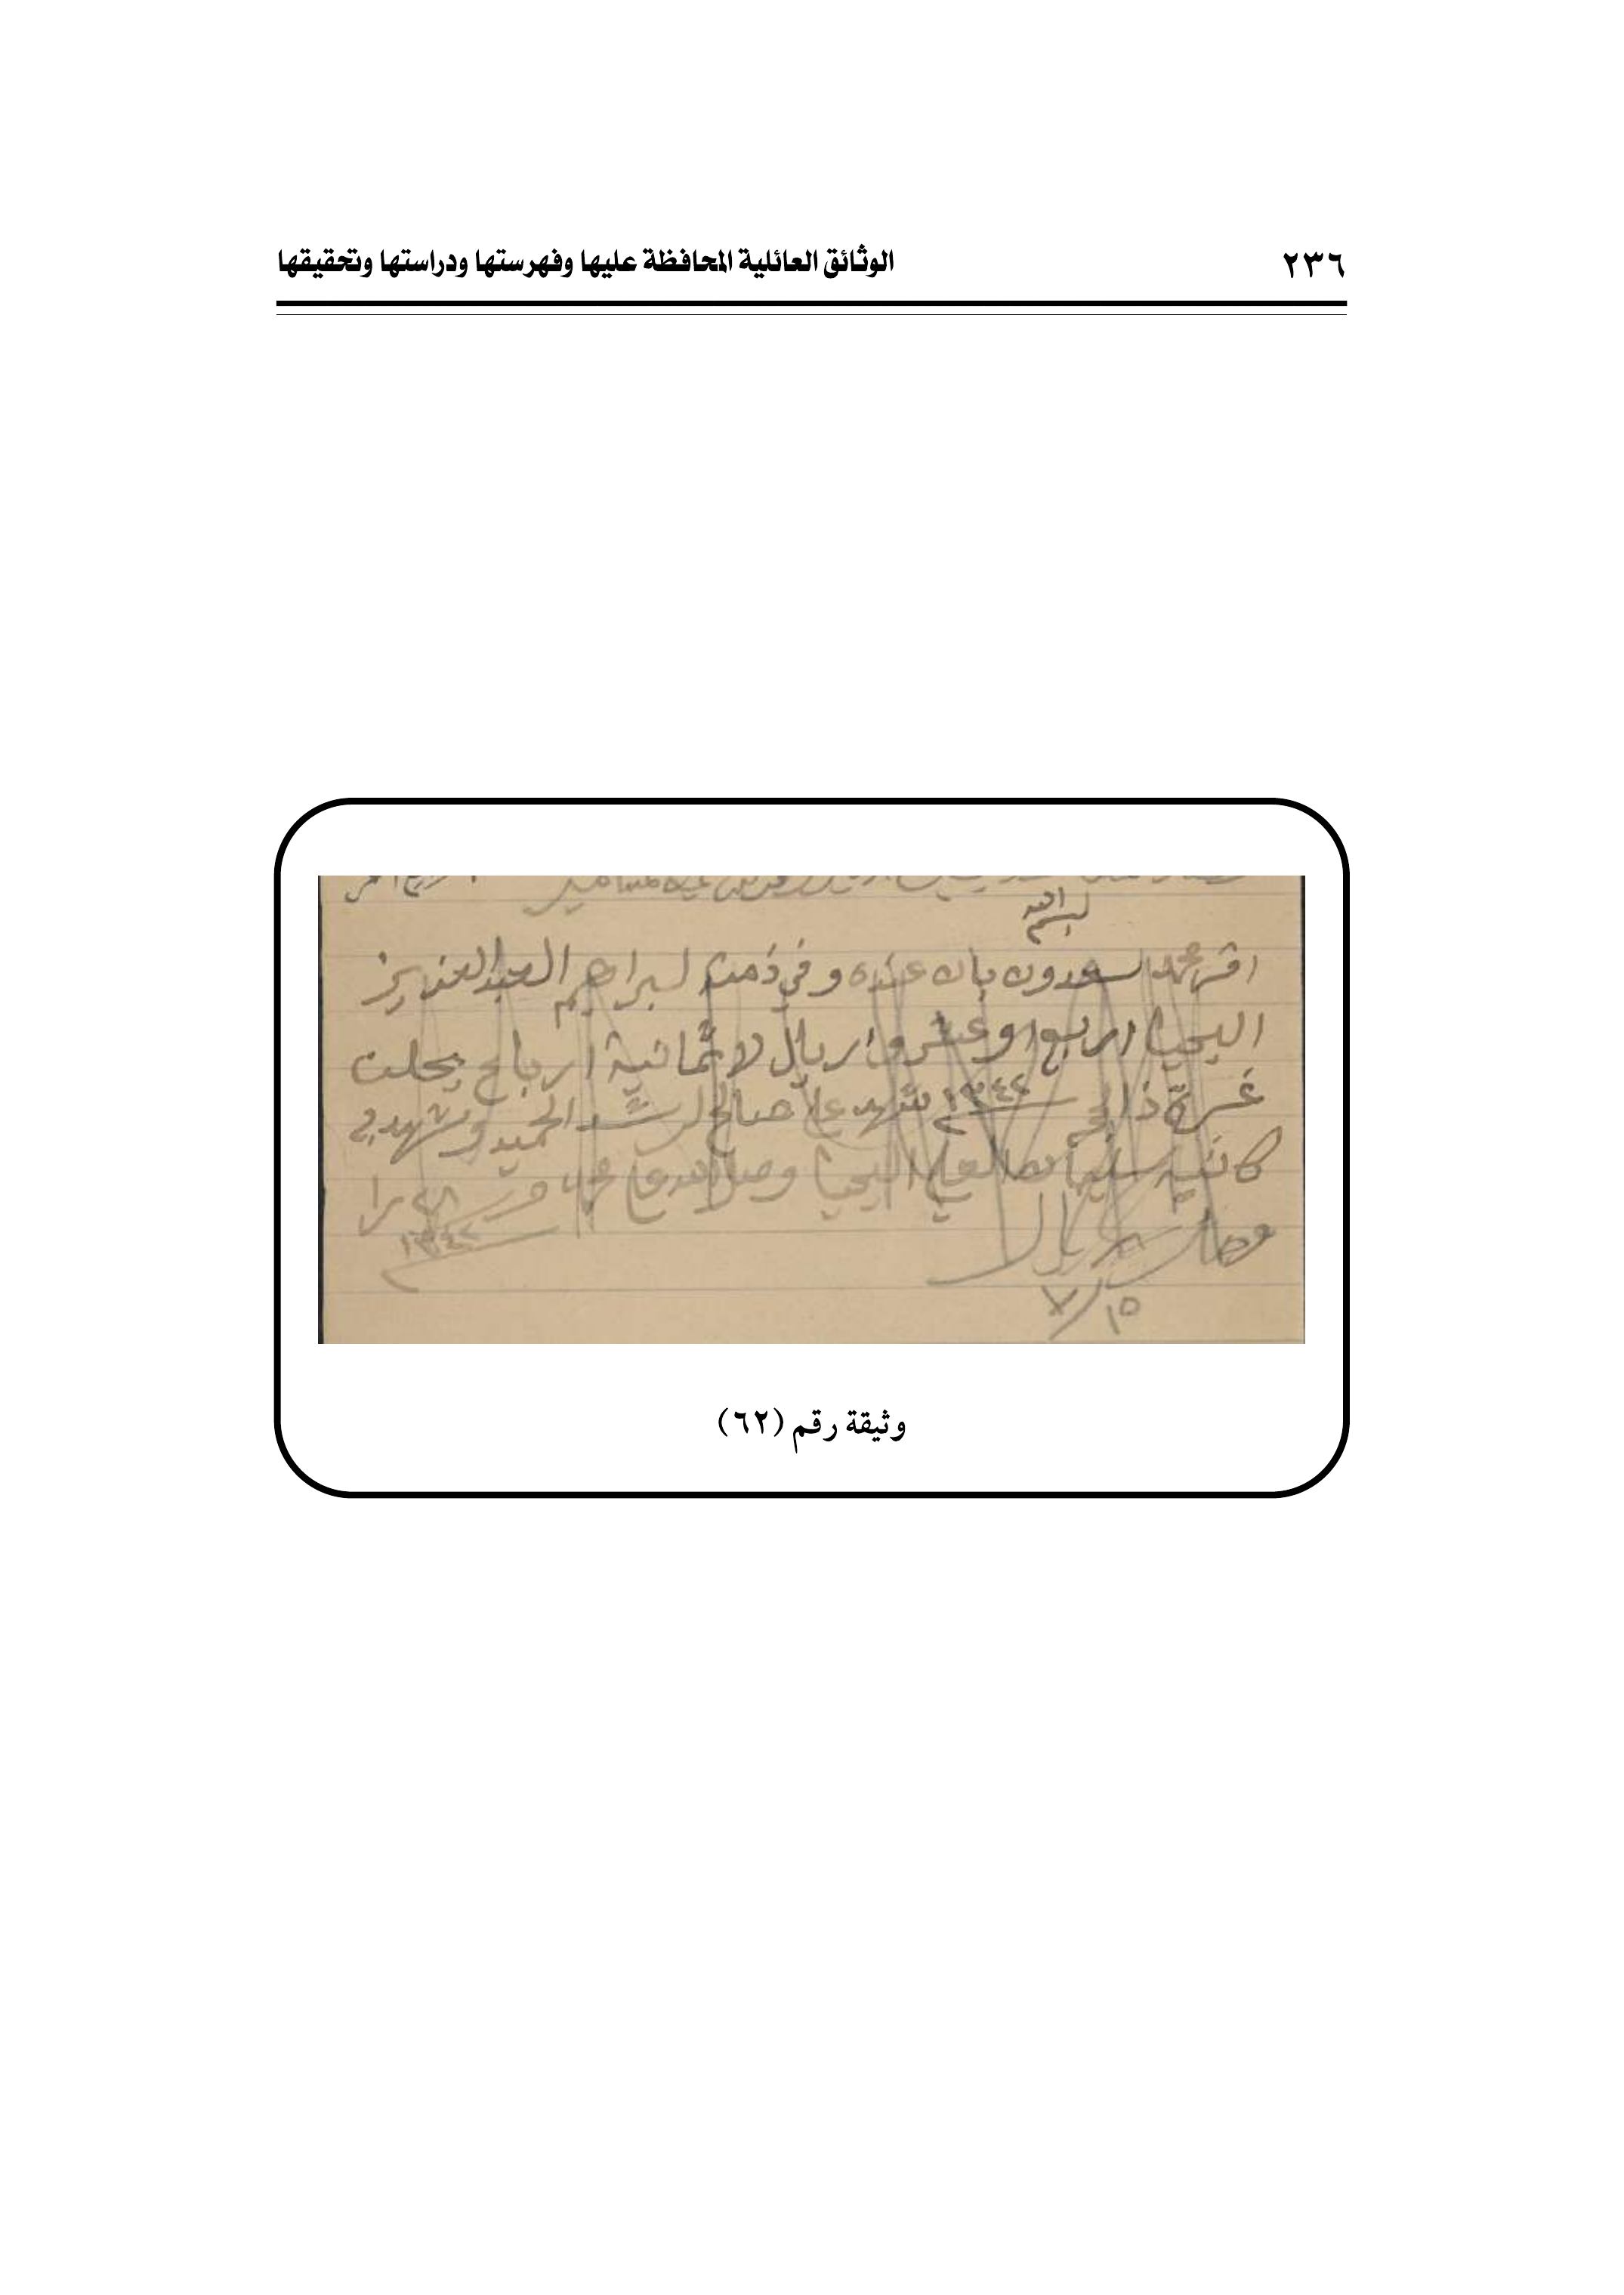 ٢٣٦
الوثائق العائلية المحافظة عليها وفهرستها ودراستها وتحقيقها
بسم الله
اقر محمد السعدون بان عنده وفي ذمته لبراهيم العبد العزيز
اليحيا اربع وعشروا اريال لا ثمانية ارباع يحلن
غرة ذالحج ١٣٤٢ شهد على صالح لرشد الحميد وشهد بي
كاتبه سليمان الصالح اليحيا وصلا الله على محمد
١٣٤٢
ريالا
١٥/٧
وثيقة رقم (٦٢)